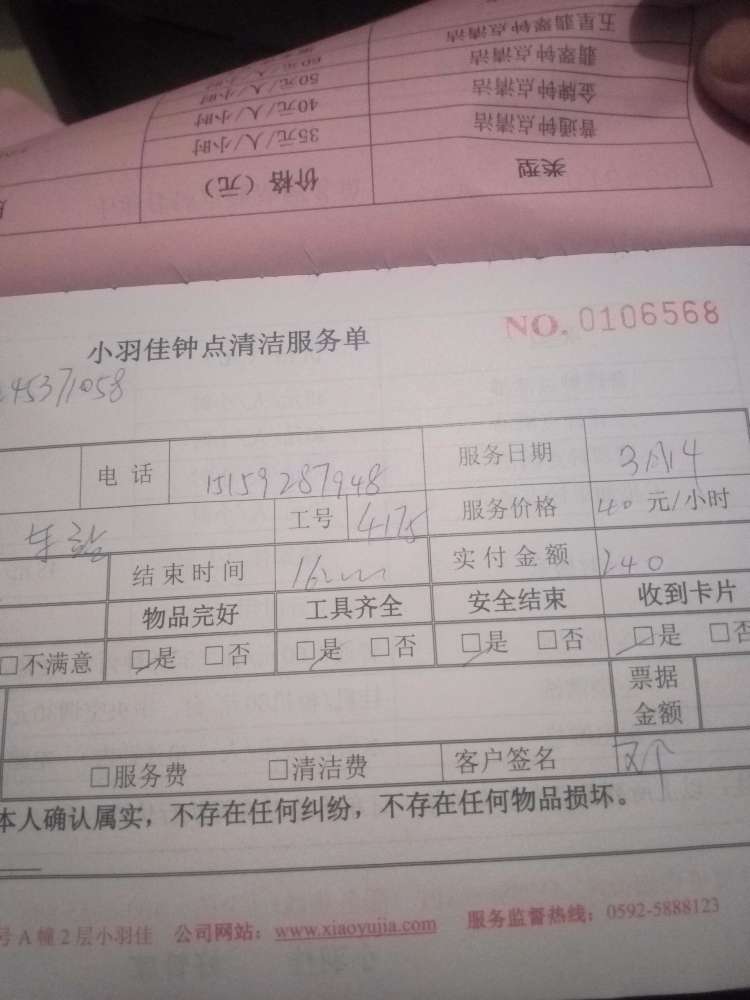 五星翡翠钟点清洁
翡翠钟点清洁 60元/人/小时
金牌钟点清洁 50元/人/小时
普通钟点清洁 40元/人/小时
35元/人/小时
类型 价格（元）
NO. 0106568
小羽佳钟点清洁服务单
45371058
电话 15159287948 服务日期 3月14
工号 4175 服务价格 40 元/小时
结束时间 16 实付金额 240
物品完好 工具齐全 安全结束 收到卡片
□不满意 □是 □否 □是 □否 □是 □否 □是 □否
票据
金额
□服务费 □清洁费 客户签名
本人确认属实，不存在任何纠纷，不存在任何物品损坏。
号A幢2层小羽佳 公司网站：www.xiaoyujia.com 服务监督热线：0592-5888123